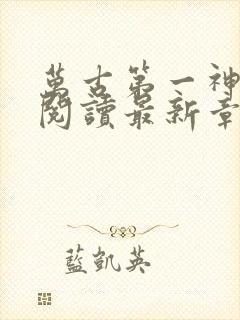 萬古第一神
閱讀最新章
藍凱英